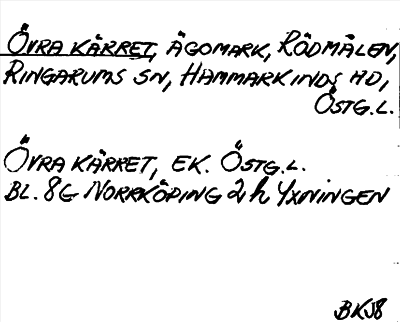 ÖVRA KÄRRET, ÄGOMARK, RÖDMÅLEN,
RINGARUMS SN, HAMMARKINDS HD,
ÖSTG.L.
ÖVRA KÄRRET, EK. ÖSTG.L.
BL. 8G NORRKÖPING 2h YXNINGEN
BKJ8